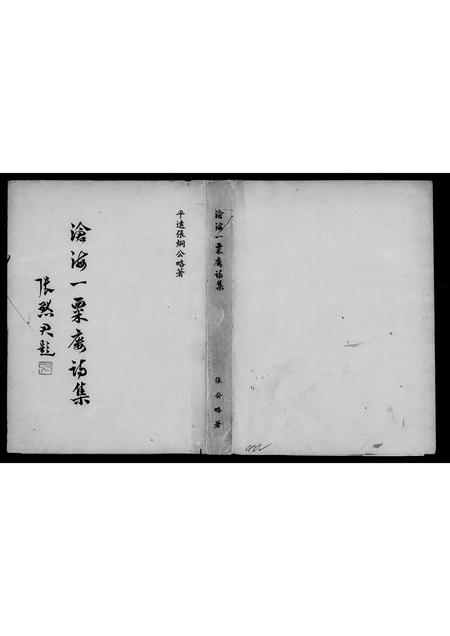 平遠張炯公略著
滄海一粟廔詩集
張默君題
滄海一粟廔詩集
張公略著